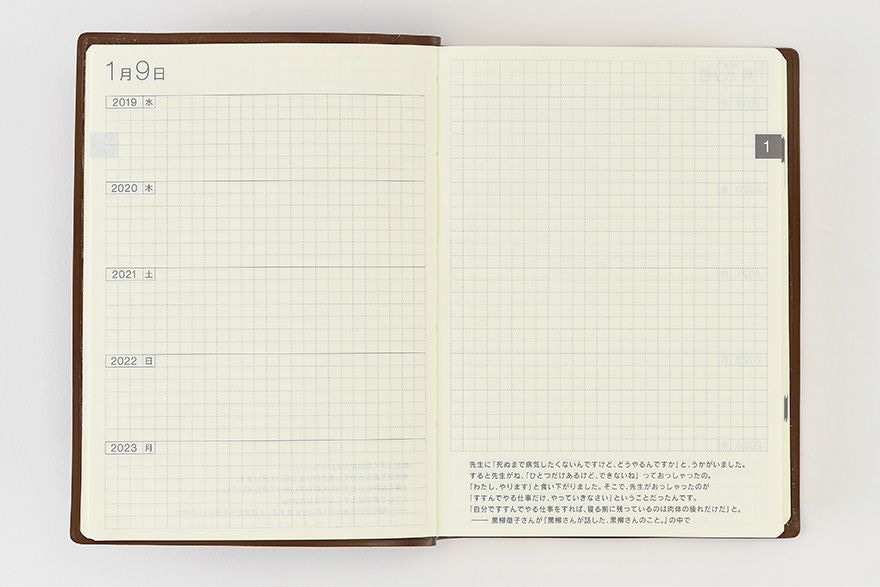 1月9日
2019 水
2020 木
2021 土
2022 日
2023 月
1
先生に「死ぬまで病気したくないんですけど、どうやるんですか」と、うかがいました。
すると先生がね、「ひとつだけあるけど、できないね」っておっしゃったの。
「わたし、やります」と食い下がりました。そこで、先生がおっしゃったのが
「すすんでやる仕事だけ、やっていきなさい」ということだったんです。
「自分ですすんでやる仕事をすれば、寝る前に残っているのは肉体の疲れだけだ」と。
―― 黒柳徹子さんが『黒柳さんが話した、黒柳さんのこと。』の中で